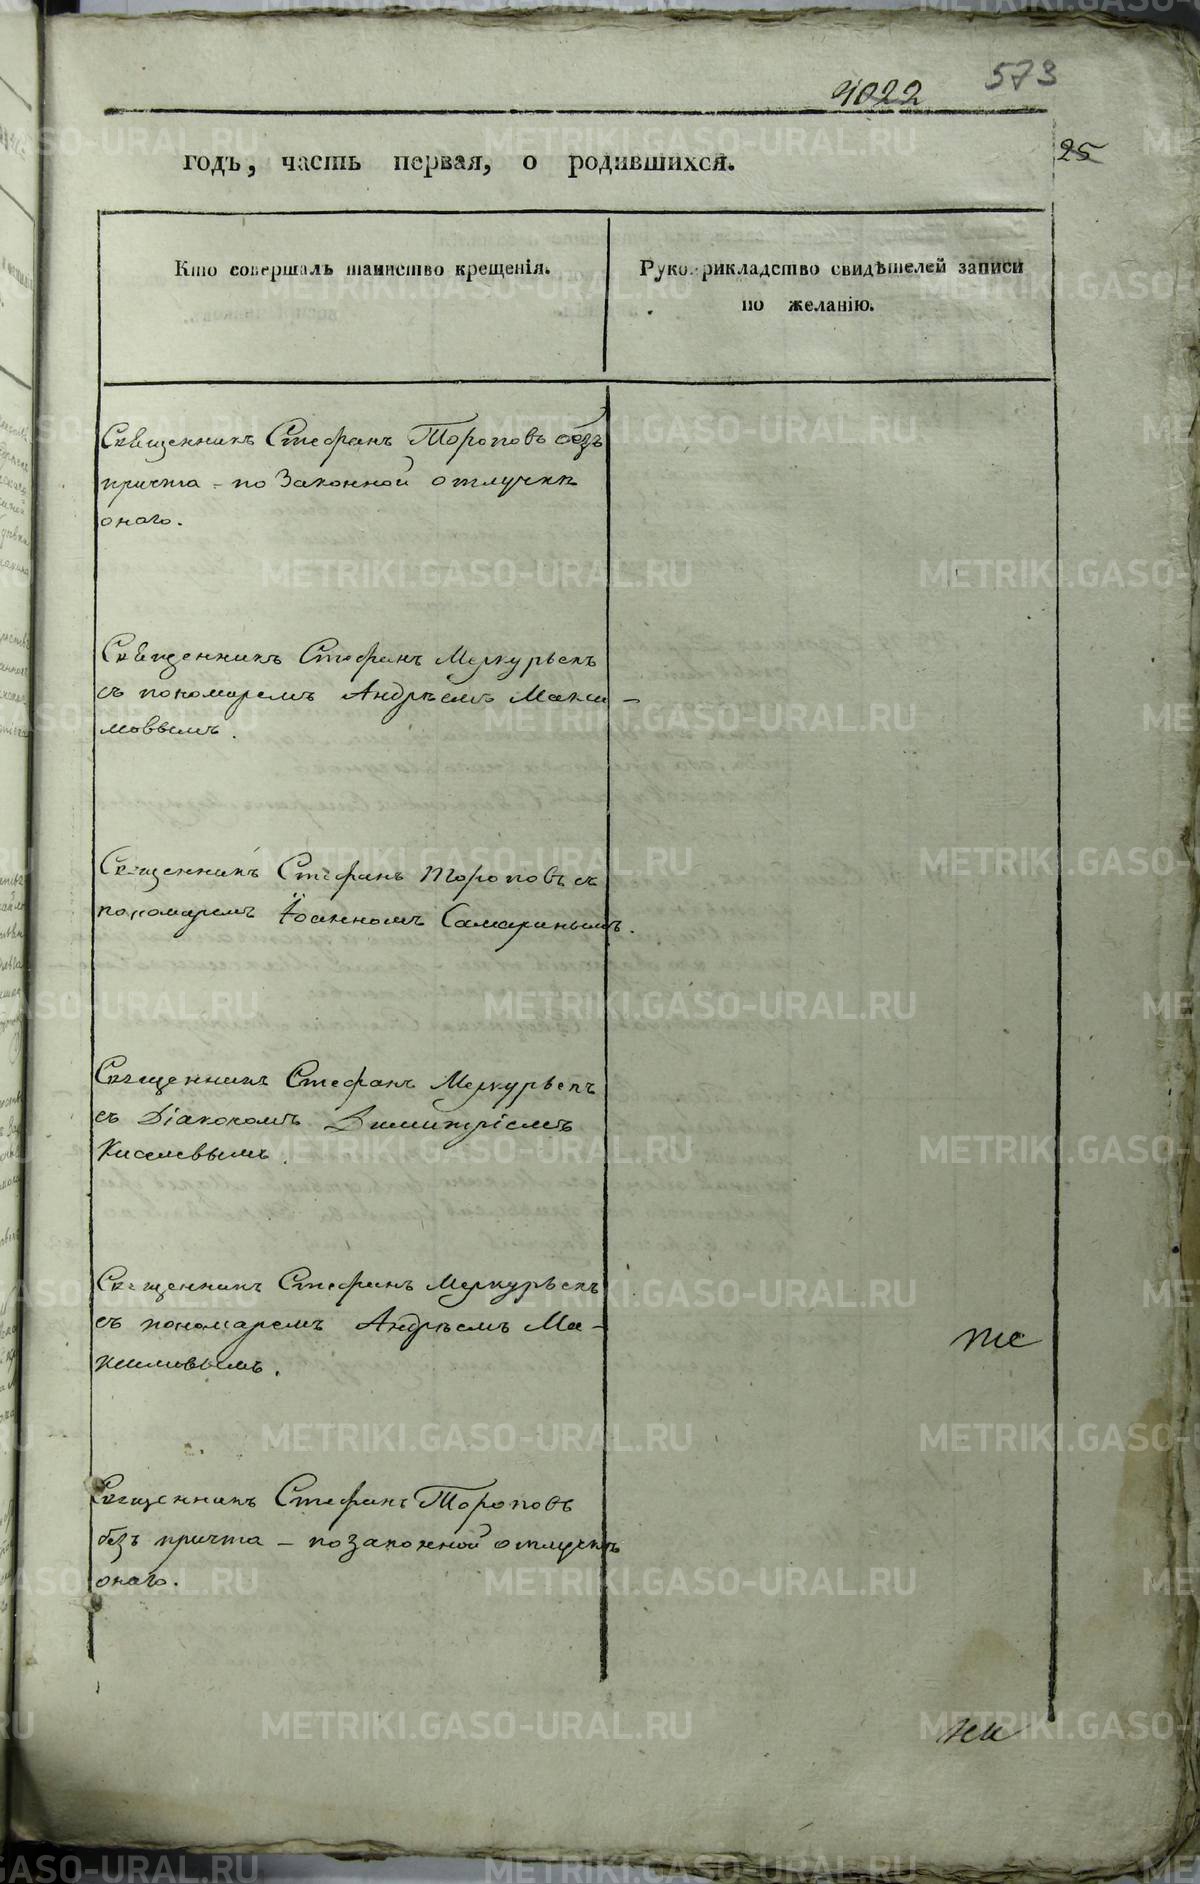 573
4022
25
годъ, часть первая, о родившихся.
Кто совершалъ таинство крещенія.
Рукоприкладство свидѣтелей записи
по желанію.
Священникъ Стефанъ Тороповъ безъ
причта - по Законной отлучкѣ
онаго.
Священникъ Стефанъ Меркурьевъ
съ пономаремъ Андрѣемъ Макси-
мовымъ.
Священникъ Стефанъ Тороповъ съ
пономаремъ Іоанномъ Самаринымъ.
Священникъ Стефанъ Меркурьевъ
съ Діакономъ Димитріемъ
Киселевымъ.
Священникъ Стефанъ Меркурьевъ
съ пономаремъ Андрѣемъ Ма-
ксимовымъ.
Священникъ Стефанъ Тороповъ
безъ причта - по законной отлучкѣ
онаго.
METRIKI.GASO-URAL.RU